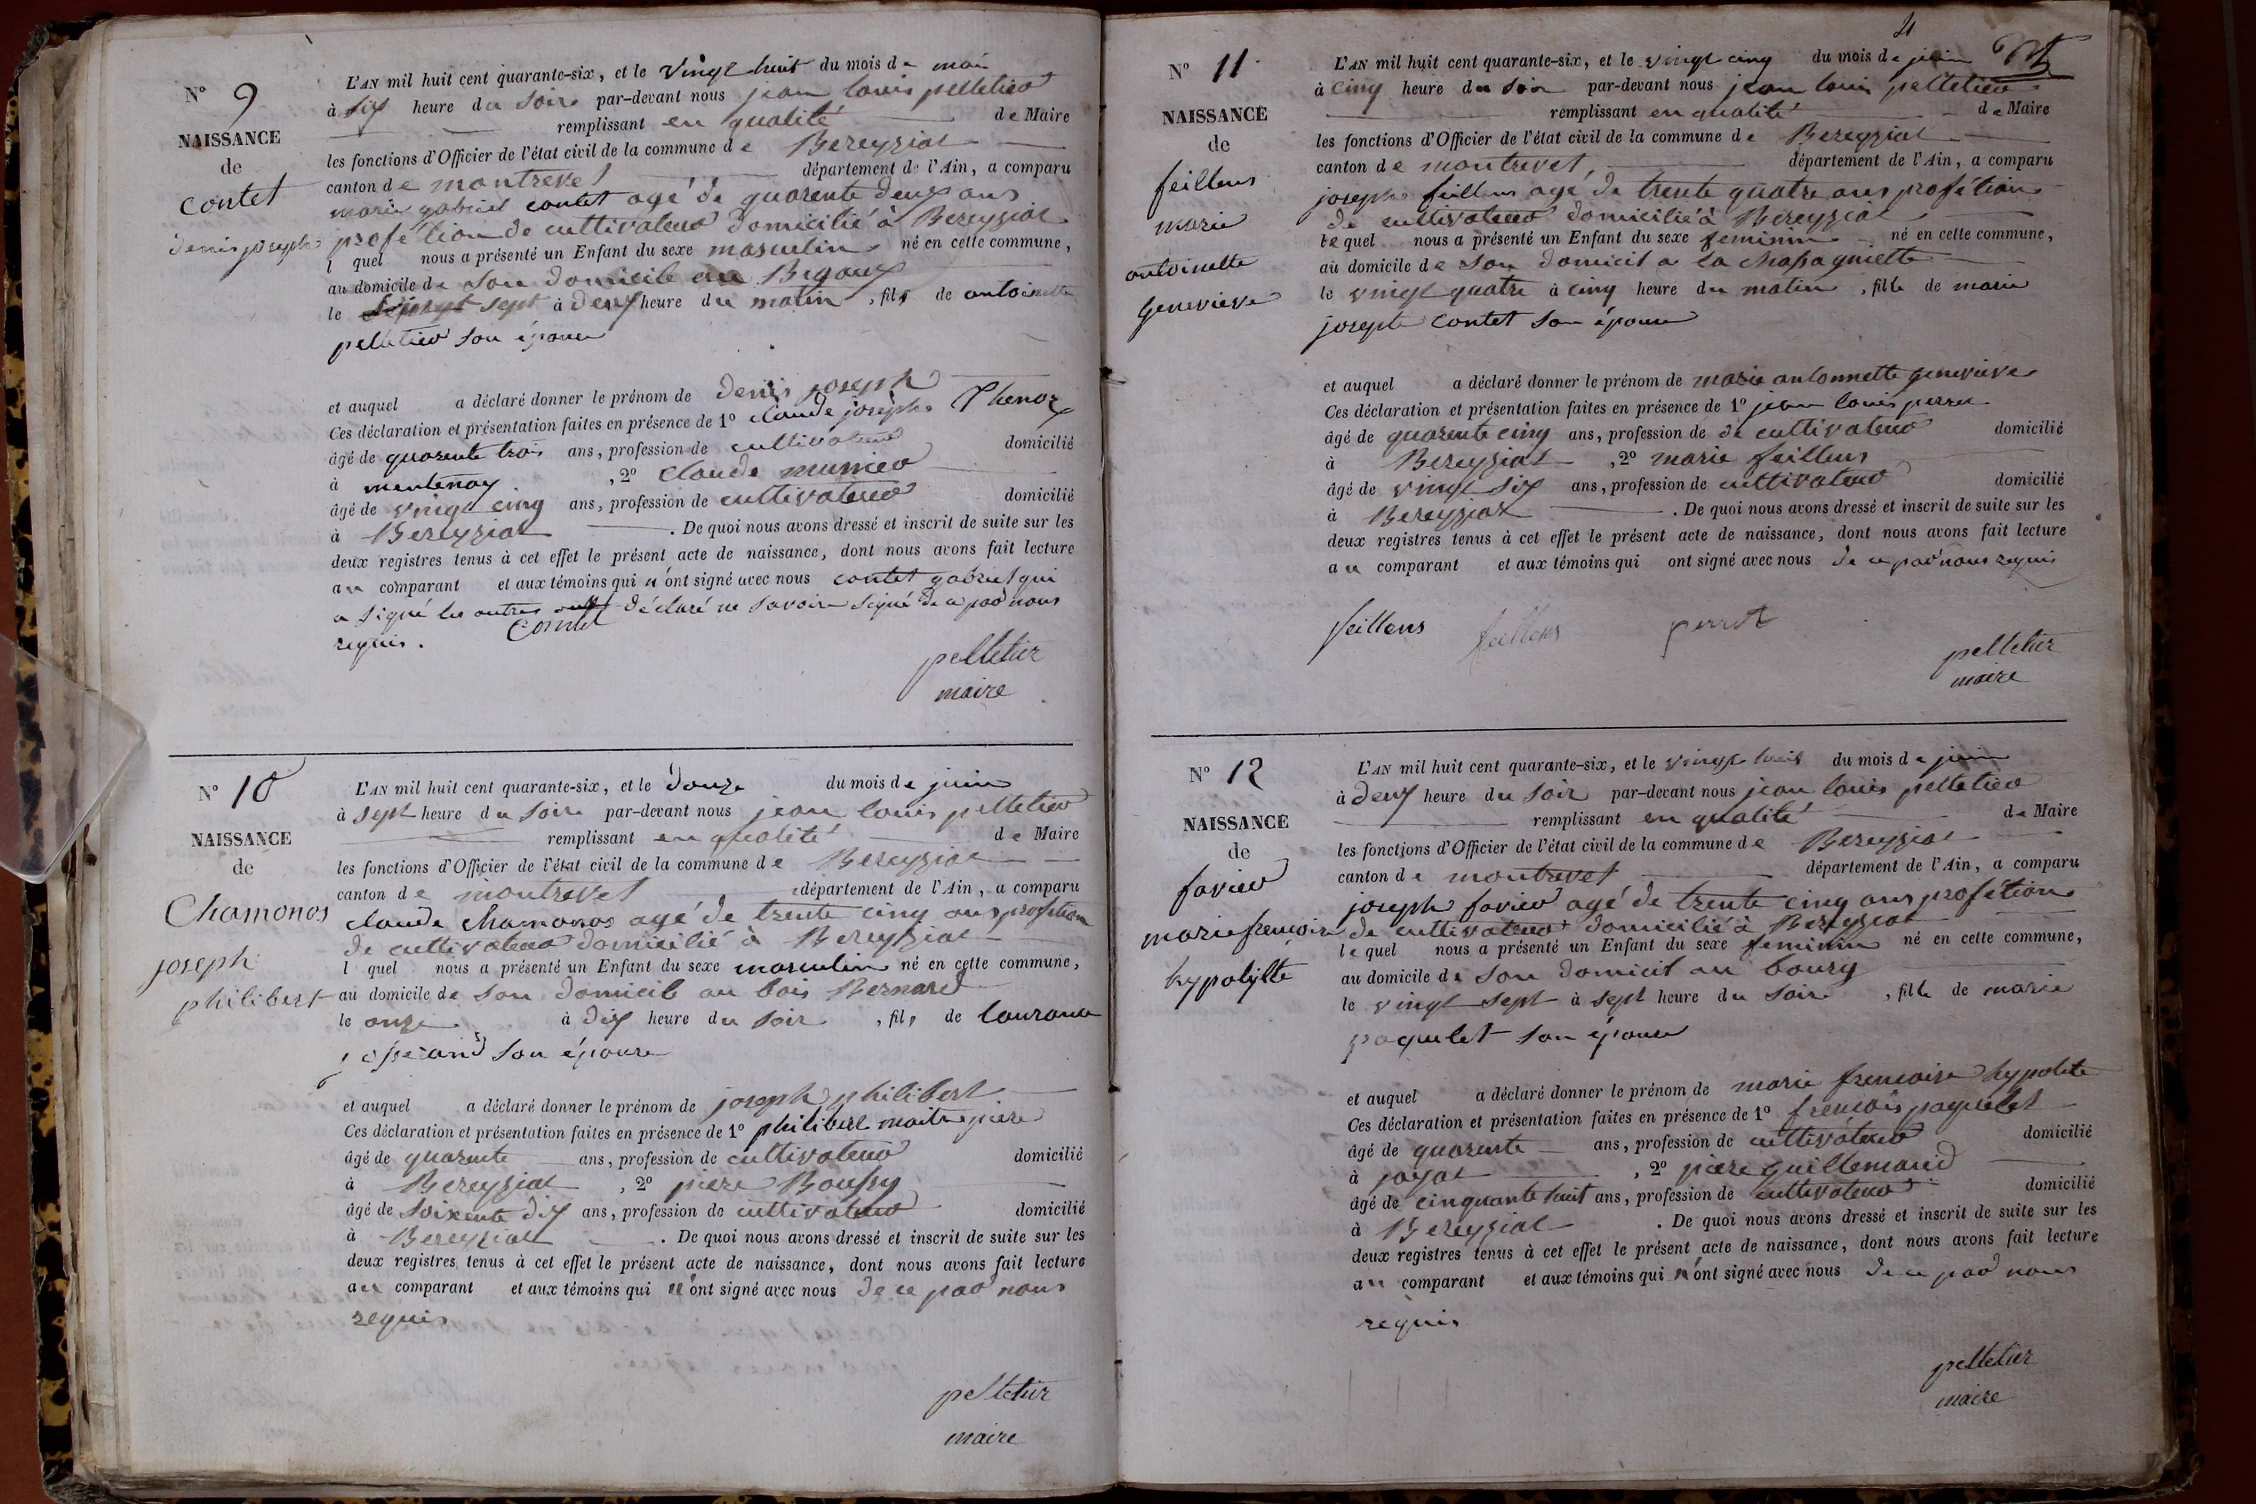 N° 9
NAISSANCE
de
contet
denis joseph
L'AN mil huit cent quarante-six, et le vingt huit du mois de mai
à six heure du soire par-devant nous jean louis pelletier
remplissant en qualité de Maire
les fonctions d'Officier de l'état civil de la commune de Bereyziat
canton de montrevel département de l'Ain, a comparu
marie gabriel contet agé de quarente deux ans
profétion de cultivateur domicilié à Bereyziat
l quel nous a présenté un Enfant du sexe masculin né en cette commune,
au domicile de son domicile au Bigaux
le sept à deux heure du matin, fils de antoinette
pelletier son épouse
et auquel a déclaré donner le prénom de denis joseph
Ces déclaration et présentation faites en présence de 1° claude joseph Thenoz
âgé de quarente trois ans, profession de cultivateur domicilié
à mentenay, 2° claude munier
âgé de vingt cinq ans, profession de cultivateur domicilié
à Bereyziat. De quoi nous avons dressé et inscrit de suite sur les
deux registres tenus à cet effet le présent acte de naissance, dont nous avons fait lecture
au comparant et aux témoins qui n'ont signé avec nous contet gabriel qui
a signé les autres ont déclaré ne savoir signé de ce par nous
requis.
Contet
pelletier
maire
N° 10
NAISSANCE
de
Chamonos
joseph
philibert
L'AN mil huit cent quarante-six, et le douze du mois de juin
à sept heure du soire par-devant nous jean louis pelletier
remplissant en qualité de Maire
les fonctions d'Officier de l'état civil de la commune de Bereyziat
canton de montrevel département de l'Ain, a comparu
claude Chamonos agé de trente cinq ans profétion
de cultivateur domicilié à Bereyziat
l quel nous a présenté un Enfant du sexe masculin né en cette commune,
au domicile de son domicile au bois Bernard
le onze à dix heure du soir, fils de
son épouse
et auquel a déclaré donner le prénom de joseph philibert
Ces déclaration et présentation faites en présence de 1° philibert maitrepiere
âgé de quarente ans, profession de cultivateur domicilié
à Bereyziat, 2° piere Boussy
âgé de soixente dix ans, profession de cultivateur domicilié
à Bereyziat. De quoi nous avons dressé et inscrit de suite sur les
deux registres tenus à cet effet le présent acte de naissance, dont nous avons fait lecture
au comparant et aux témoins qui n'ont signé avec nous de ce par nous
requis
pelletier
maire
4
N° 11
NAISSANCE
de
feillens
marie
antoinette
Genevieve
L'AN mil huit cent quarante-six, et le vingt cinq du mois de juin
à cinq heure du soir par-devant nous jean louis pelletier
remplissant en qualité de Maire
les fonctions d'Officier de l'état civil de la commune de Bereyziat
canton de montrevel département de l'Ain, a comparu
joseph feillens agé de trente quatre ans profétion
de cultivateur domicilié à Bereyziat
le quel nous a présenté un Enfant du sexe feminin né en cette commune,
au domicile de son domicil a la Chassagniette
le vingt quatre à cinq heure du matin, fille de marie
josephe contet son épouse
et auquel a déclaré donner le prénom de marie antonnette genevieve
Ces déclaration et présentation faites en présence de 1° jean louis perret
âgé de quarente cinq ans, profession de de cultivateur domicilié
à Bereyziat, 2° marie feillens
âgé de vingt six ans, profession de cultivateur domicilié
à Bereyziat. De quoi nous avons dressé et inscrit de suite sur les
deux registres tenus à cet effet le présent acte de naissance, dont nous avons fait lecture
au comparant et aux témoins qui ont signé avec nous de ce par nous requis
feillens feillens perret
pelletier
maire
N° 12
NAISSANCE
de
favier
marie frencoise
hypolytte
L'AN mil huit cent quarante-six, et le vingt huit du mois de juin
à deux heure du soir par-devant nous jean louis pelletier
remplissant en qualité de Maire
les fonctions d'Officier de l'état civil de la commune de Bereyziat
canton de montrevel département de l'Ain, a comparu
joseph favier agé de trente cinq ans profétion
de cultivateur domicilié à Bereyziat
le quel nous a présenté un Enfant du sexe feminin né en cette commune,
au domicile de son domicil au bourg
le vingt sept à sept heure du soire, fille de marie
paquelet son épouse
et auquel a déclaré donner le prénom de marie frencoise hypolete
Ces déclaration et présentation faites en présence de 1° frencois paquelet
âgé de quarente ans, profession de cultivateur domicilié
à jayat, 2° piere guillemaud
âgé de cinquante huit ans, profession de cultivateur domicilié
à Bereyziat. De quoi nous avons dressé et inscrit de suite sur les
deux registres tenus à cet effet le présent acte de naissance, dont nous avons fait lecture
au comparant et aux témoins qui n'ont signé avec nous de ce par nous
requis
pelletier
maire